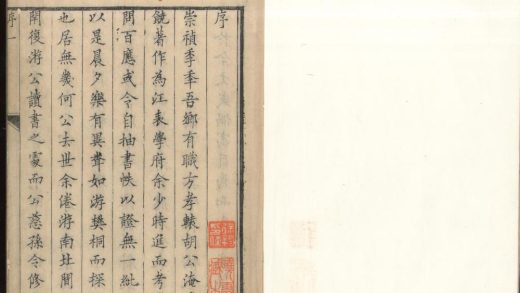 序
崇禎季秊吾鄉有職方孝轅胡公海
饒著作為江表學府余少時進而考
問百應或令自抽書帙以證無一紕
以是晨夕樂有異如游樊桐而探
也居無幾何公去世余倦游南北間
開復游公讀書之處而公慈孫令修
序一